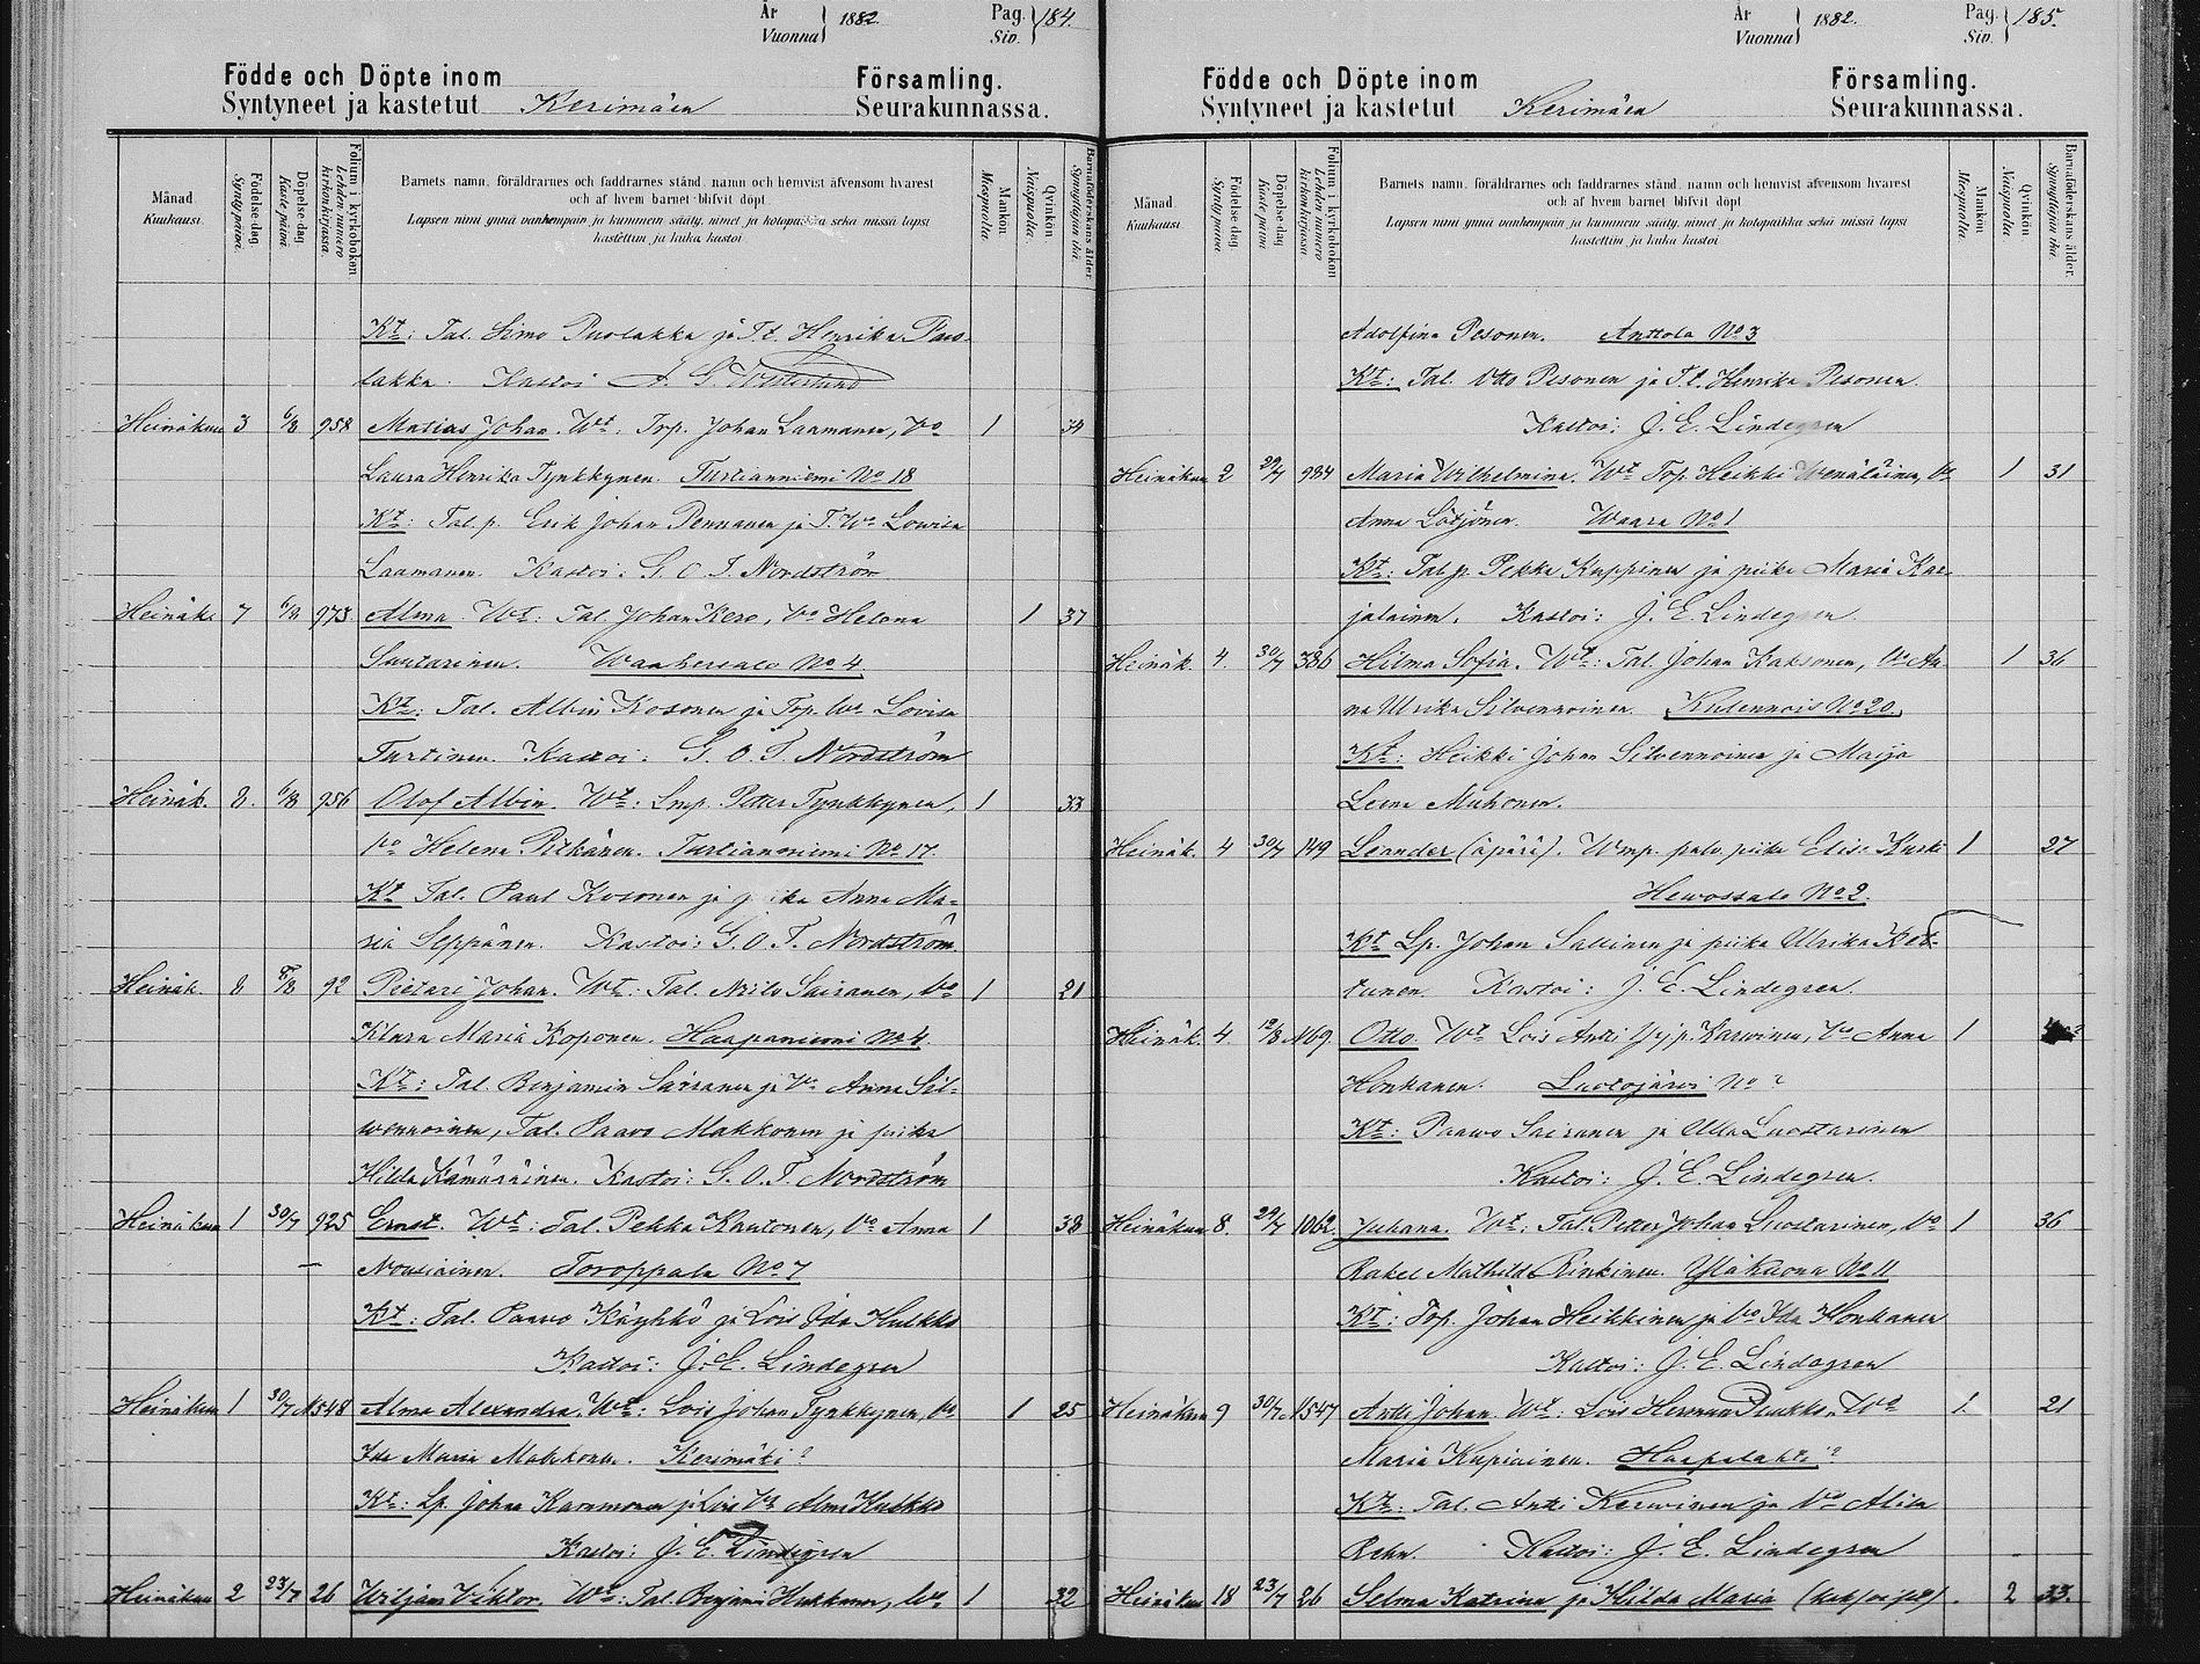 År Vuonna } 1882. Pag. Siv. } 184.
Födde och Döpte inom Församling.
Syntyneet ja kastetut Kerimäen Seurakunnassa.
Månad. Kuukausi.
Födelse-dag. Synty-päivä.
Döpelse-dag. Kaste-päivä.
Folium i kyrkoboken Lehden numero kirkonkirjassa.
Barnets namn, föräldrarnes och faddrarnes stånd, namn och hemvist äfvensom hvarest
och af hvem barnet blifvit döpt.
Lapsen nimi ynnä vanhempain ja kummein sääty, nimet ja kotopaikka sekä missä lapsi
kastettiin ja kuka kastoi
Mankön Miespuolia.
Qvinkön Naispuolia.
Barnaföderskans ålder. Synnyttäjän ikä.
Kt: Tal. Simo Puolakka ja T.t. Henrika Puo-
lakka. Kastoi A. G. Westerlund
Heinäkuu 3 6/8 958 Matias Johan. Wt. Trp. Johan Laamanen, Vo 1 34
Laura Henrika Tynkkynen. Turtianniemi No 18
Kt: Tal. p. Erik Johan Pennanen ja T. Wo Lowisa
Laamanen. Kastoi: G. O. T. Nordström
Heinäk. 7 6/8 973 Alma Wt: Tal. Johan Kero, Vo Helena 1 37
Sautarinen. Waahersalo No 4.
Kt: Tal. Albin Kosonen ja Trp. Wo Lovisa
Turtinen. Kastoi: G. O. T. Nordström
Heinäk. 8. 6/8 956 Olof Albin. Wt: Lmp. Petter Tynkkynen, 1 33
Vo Helena Pitkänen. Turtianniemi No 17.
Kt Tal. Paul Kosonen ja piika Anna Ma-
ria Seppänen. Kastoi: G. O. T. Nordström.
Heinäk. 8 8/8 92 Pietari Johan. Wt: Tal. Niilo Sairanen, Vo 1 21
Klara Maria Koponen. Haapaniemi No 4.
Kt: Tal. Benjamin Sairanen ja Vo Anna Sil-
wennoinen, Tal. Paavo Makkonen ja piika
Hilda Kämäräinen. Kastoi: G. O. T. Nordström
Heinäkuu 1 30/7 925 Ernst. Wt: Tal. Pekka Kautonen, Vo Anna 1 38
Nousiainen. Toroppala No 7
Kt: Tal. Paavo Käyhkö ja Lois Ida Hulkko
Kastoi: J. E. Lindegren
Heinäkuu 1 30/7 N548 Alma Alexandra. Wt: Lois Johan Tynkkynen, Vo 1 25
Ida Maria Makkonen. Kerimäki?
Kt: Lp. Johan Karumonen ja Lois Vo Alma Hulkko
Kastoi: J. E. Lindegren
Heinäkuu 2 23/7 26 Wiljam Viktor. Wt: Tal. Benjam. Hukkanen, Wo 1 32
År Vuonna } 1882. Pag. Siv. } 185.
Födde och Döpte inom Församling.
Syntyneet ja kastetut Kerimäen Seurakunnassa.
Månad. Kuukausi
Födelse-dag. Synty-päivä.
Döpelse-dag Kaste-päivä.
Folium i kyrkoboken Lehden numero kirkonkirjassa.
Barnets namn, föräldrarnes och faddrarnes stånd, namn och hemvist äfvensom hvarest
och af hvem barnet blifvit döpt
Lapsen nimi ynnä vanhempain ja kummein sääty, nimet ja kotopaikka sekä missä lapsi
kastettiin ja kuka kastoi
Mankön Miespuolia.
Qvinkön Naispuolia.
Barnaföderskans ålder. Synnyttäjän ikä.
Adolfina Pesonen. Anttola No 3
Kt: Tal. Otto Pesonen ja T.t. Henrika Pesonen.
Kastoi: J. E. Lindegren
Heinäkuu 2 29/7 984 Maria Wilhelmina. Wt Trp. Heikki Wenäläinen, Vo 1 31
Anna Lötjönen. Waara No 1
Kt: Tal p. Pekka Kuppinen ja piika Maria Kar-
jalainen. Kastoi: J. E. Lindegren.
Heinäk. 4. 30/7 386 Hilma Sofia. Wt: Tal. Johan Kaksonen, Vo An- 1 36
na Ulrika Silvennoinen. Kulennois No 20.
Kt: Heikki Johan Silvennoinen ja Maija
Leena Muhonen.
Heinäk. 4 30/7 149 Leander (äpärä). Wmp. palv. piika Elis. Kurki 1 27
Hewossalo No 2.
Kt Lp. Johan Sallinen ja piika Ulrika Ket-
tunen. Kastoi: J. E. Lindegren.
Heinäk. 4. 12/8 N69. Otto. Wt Lois Anti Yrj. p. Karwinen, Vo Anna 1
Honkanen. Luotojärvi No ?
Kt: Paawo Sairanen ja Ulla Luostarinen
Kastoi: J. E. Lindegren.
Heinäkuu 8. 29/7 1062. Juhana. Wt: Tal. Petter Johan Luostarinen, Vo 1 36
Rakel Mathilda Rinkinen. Yläkuona No 11
Kt: Trp. Johan Heikkinen ja Vo Ida Honkanen
Kastoi: J. E. Lindegren
Heinäkuu 9 30/7 N547 Antti Johan. Wt: Lois Herman Puukko, Wo 1. 21
Maria Kupiainen. Haapalahti ?
Kt: Tal. Anti Kerwinen ja Vo Alisa
Rehn. Kastoi: J. E. Lindegren
Heinäkuu 18 23/7 26 Selma Katrina ja Hilda Maria (kaksoiset) 2 33.